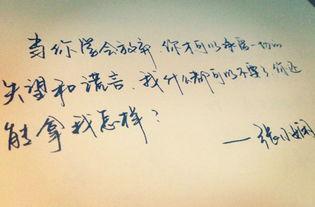 当你学会放弃 你才可以承受一切的
失望和谎言.我什么都可以不要了,你还
能拿我怎样?
——张小娴